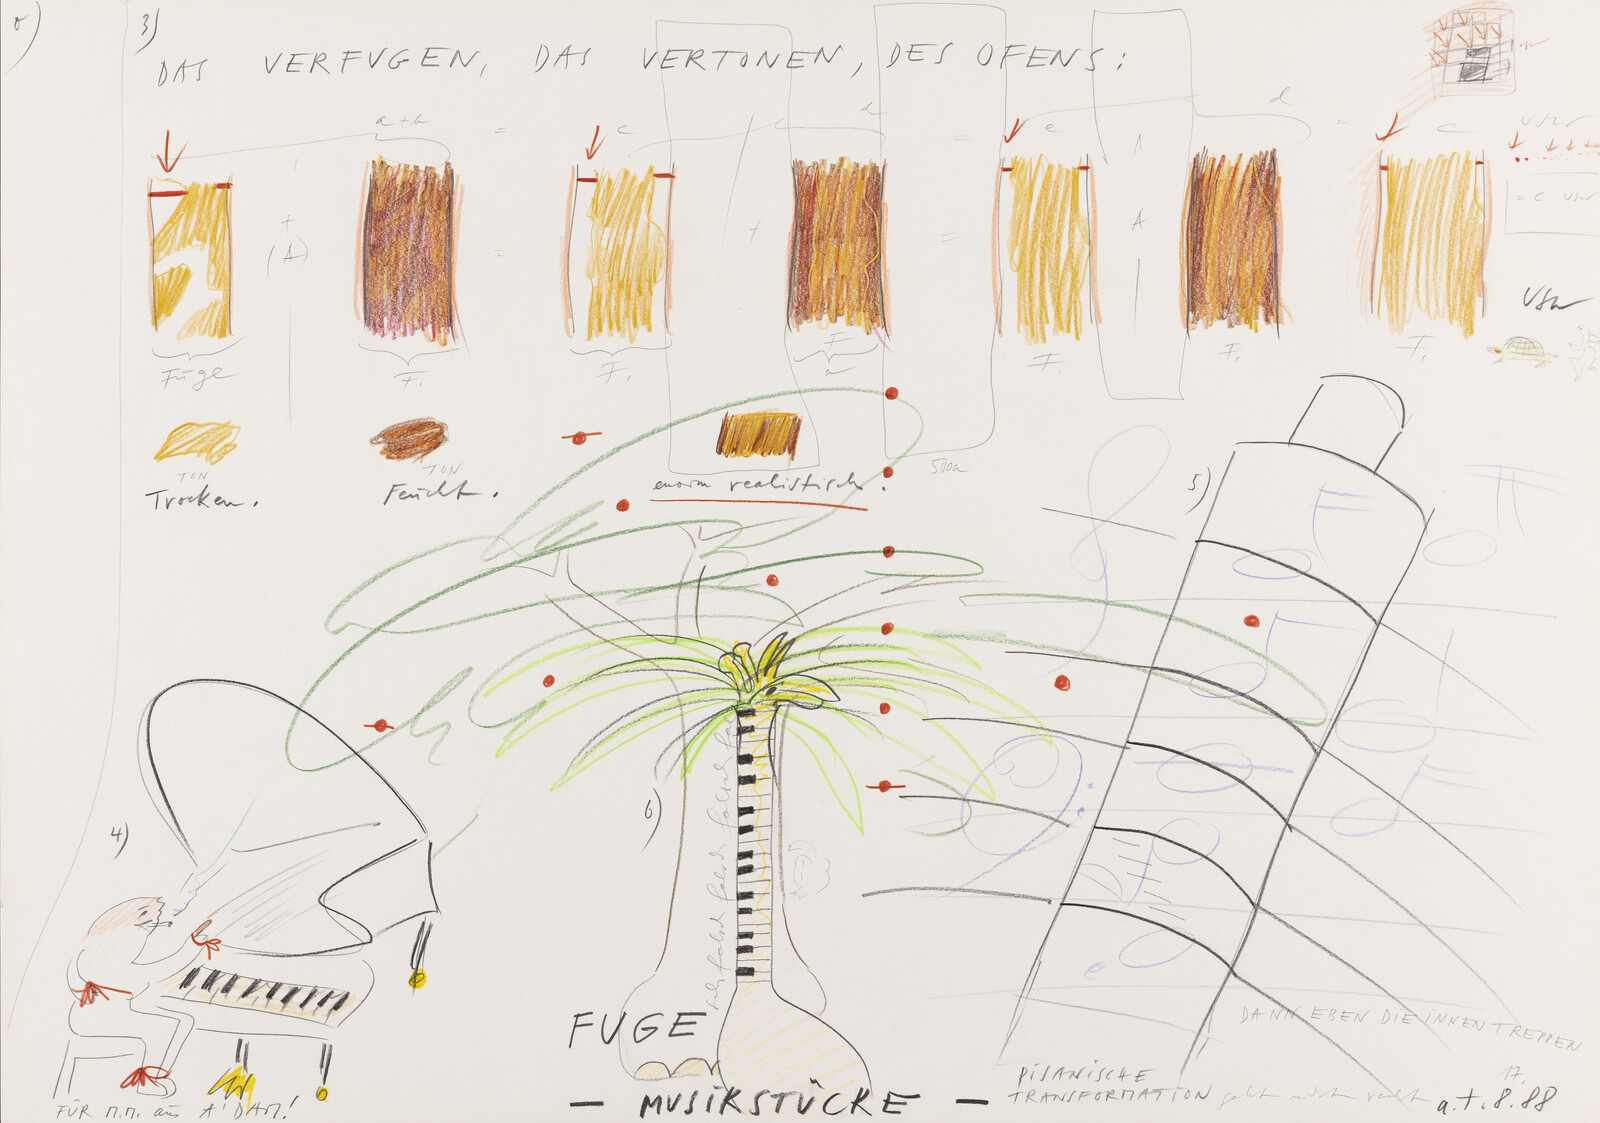 3)
DAS VERFUGEN, DAS VERTONEN, DES OFENS:
a+b = c d = e d = c usw
+ (A) = + = A
= c usw
usw
Fuge F. F. F. F. F. F.
a
TON TON
Trocken. Feucht. enorm realistisch.
5)
6)
4)
falsch falsch falsch falsch falsch
FUGE
DANN EBEN DIE INNENTREPPEN
- MUSIKSTÜCKE -
PISANISCHE
TRANSFORMATION geht nicht
FÜR M.M. aus A'DAM!
17.
a.t. 8.88